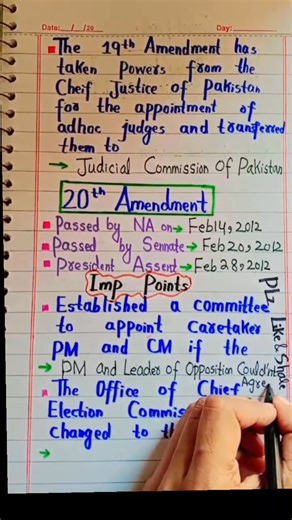 Date: __/__/20__ Day:
The 19th Amendment has
taken Powers from the
Cheif Justice of Pakistan
for the appointment of
adhoc judges and transferred
them to
→ Judicial Commission Of Pakistan
20th Amendment
Passed by NA on → Feb14, 2012
Passed by Sennate → Feb20, 2012
President Assent → Feb28, 2012
Imp Points
Established a committee
to appoint Caretaker
PM and CM if the
→ PM and Leader of Opposition Could'nt
Agree
The Office of Chief
Election
changed to
→
Plz Like & Share